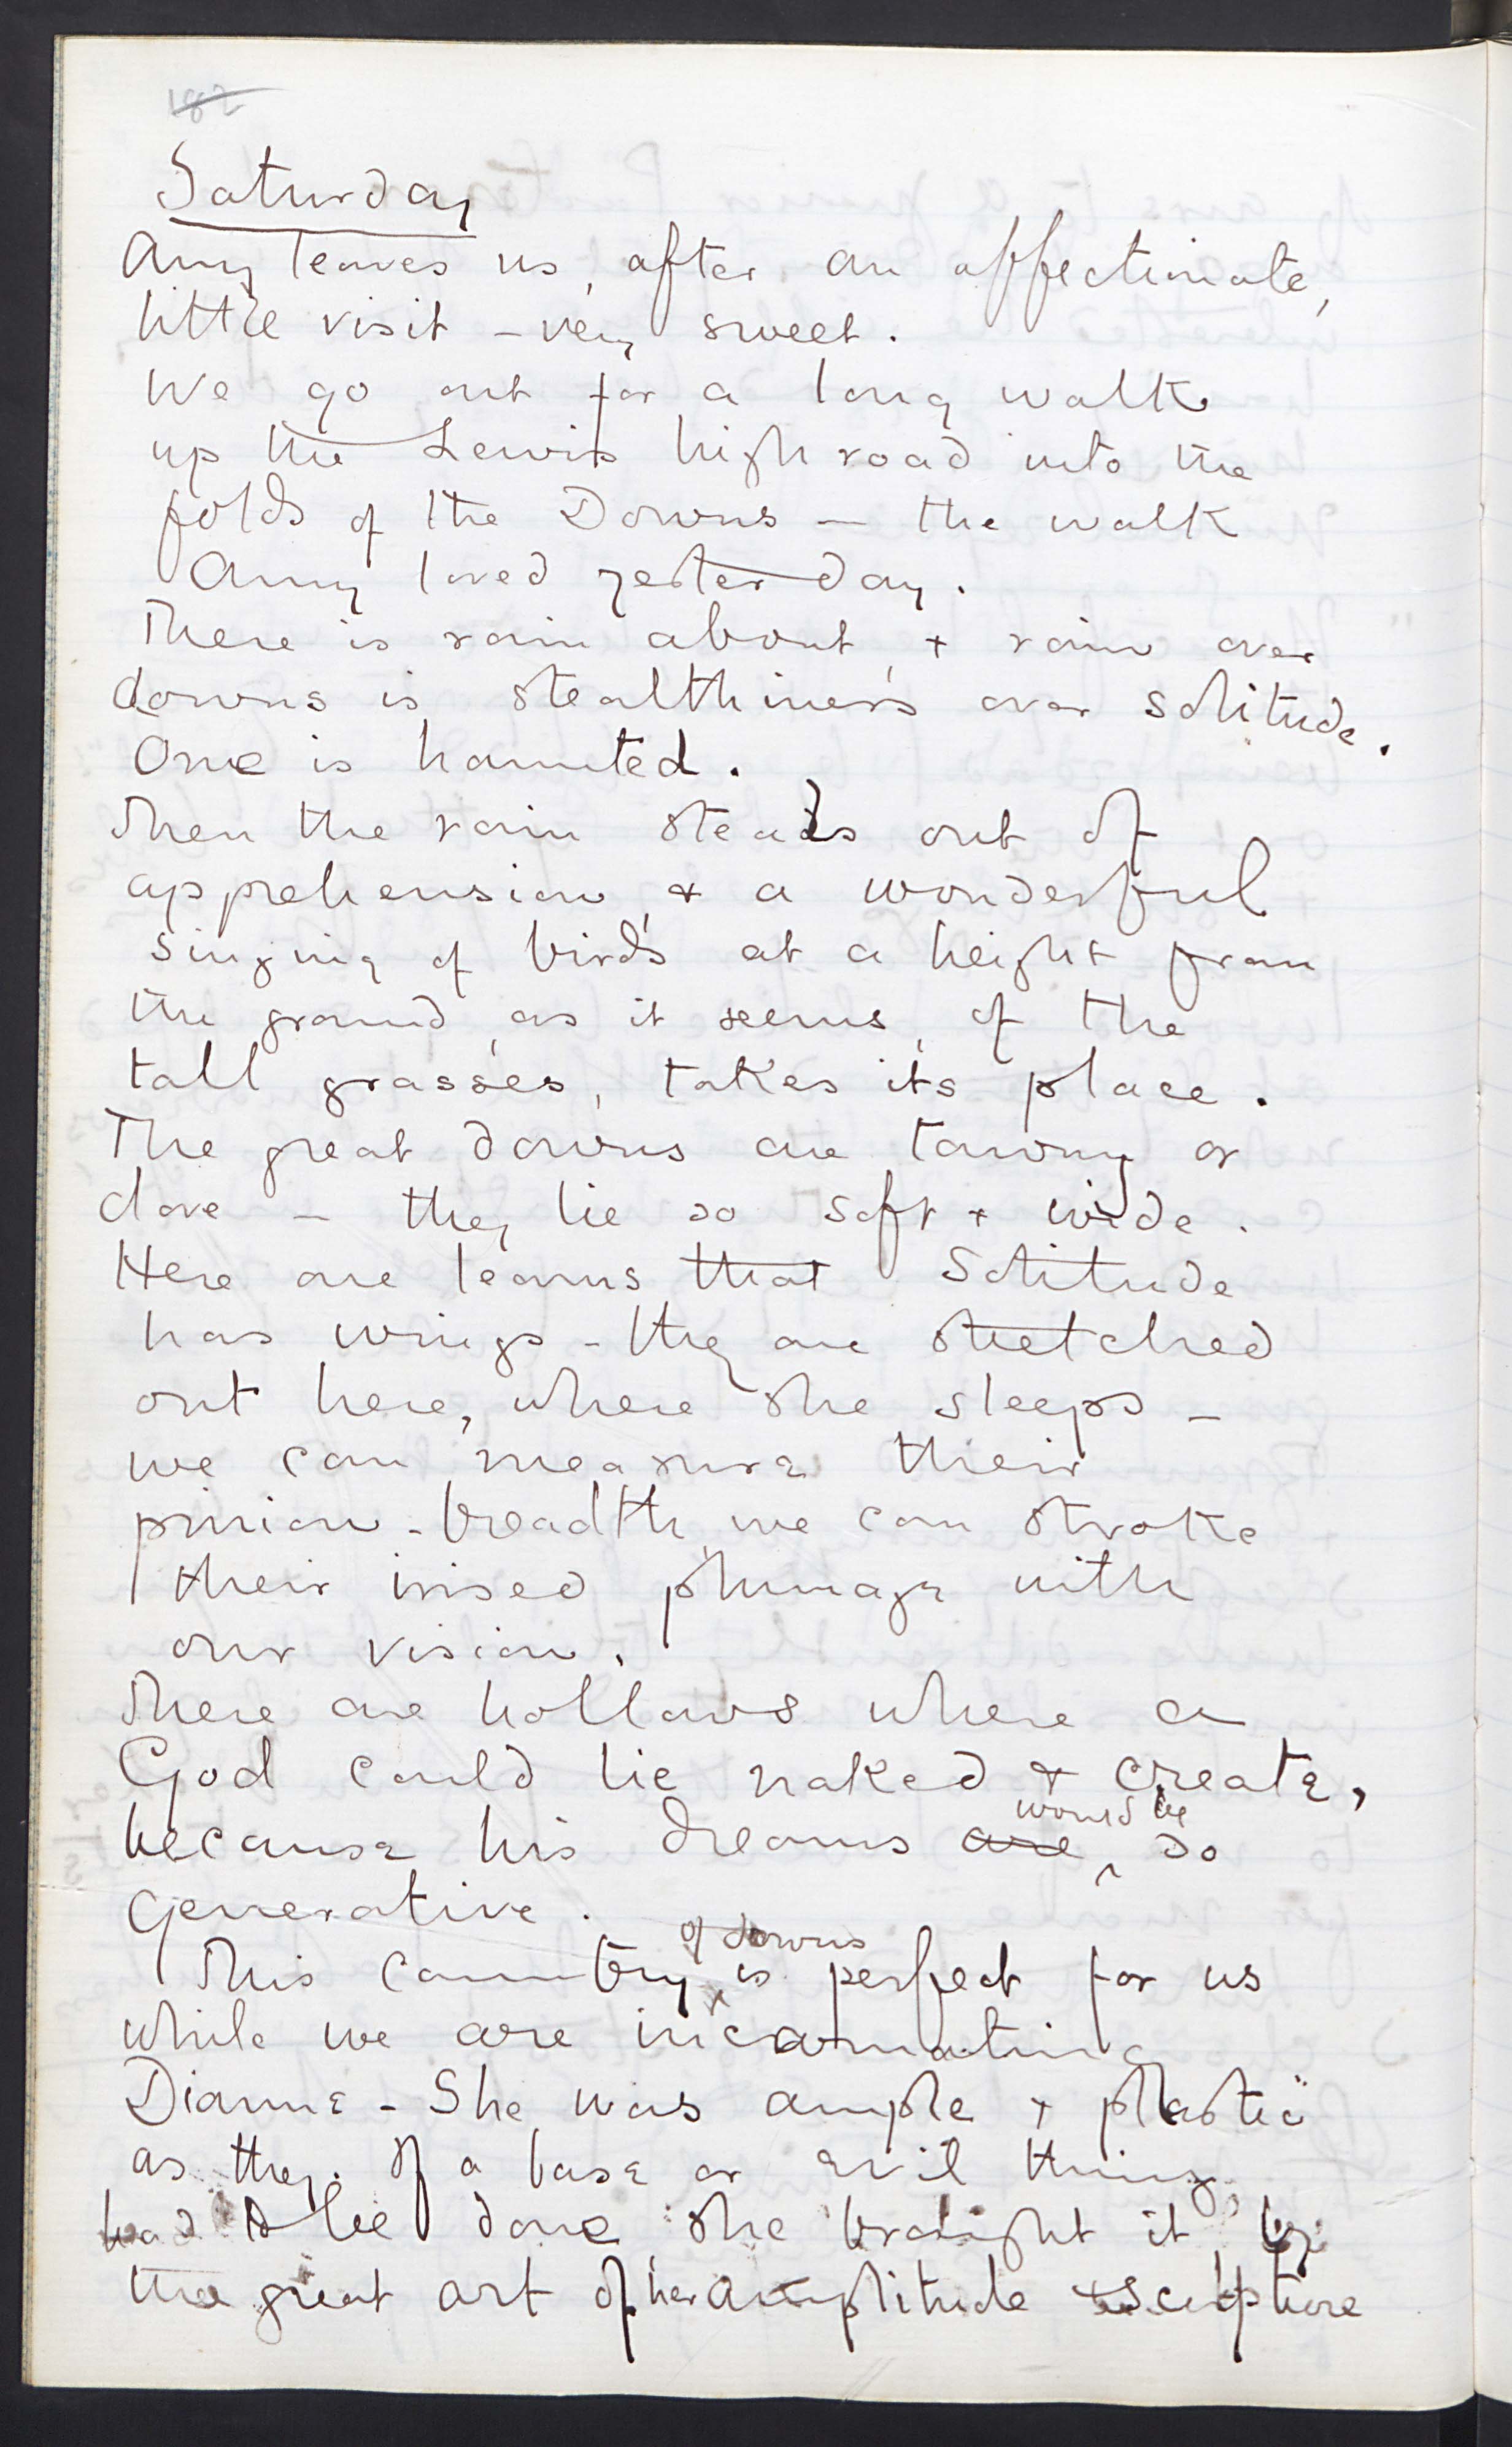 182
Saturday
Amy leaves us, after an affectionate,
little visit - very sweet.
We go out for a long walk
up the Lewis high road into the
folds of the Downs — the walk
Amy loved yesterday.
There is rain about, + rain over
downs is stealthiness over solitude.
One is haunted.
Then the rain steals out of
apprehension, & a wonderful
singing of birds at a height from
the ground, as it seems, of the
tall grasses, takes its place.
The great downs are tawny or
dove – they lie so soft + wide.
Here one learns that Solitude
has wings - they are stretched
out here, where she sleeps –
we can measure their
pinion-breadth, we can stroke
their irised plumage with
our vision.
There are hollows where a
God could lie naked & create,
because his dreams are would be so
generative.
This country of downs is perfect for us
while we are incarnating
Dianne - She was ample + plastic
as they. If a base or evil thing
had to be done, she brought it by
the great art of her amplitude & sculpture